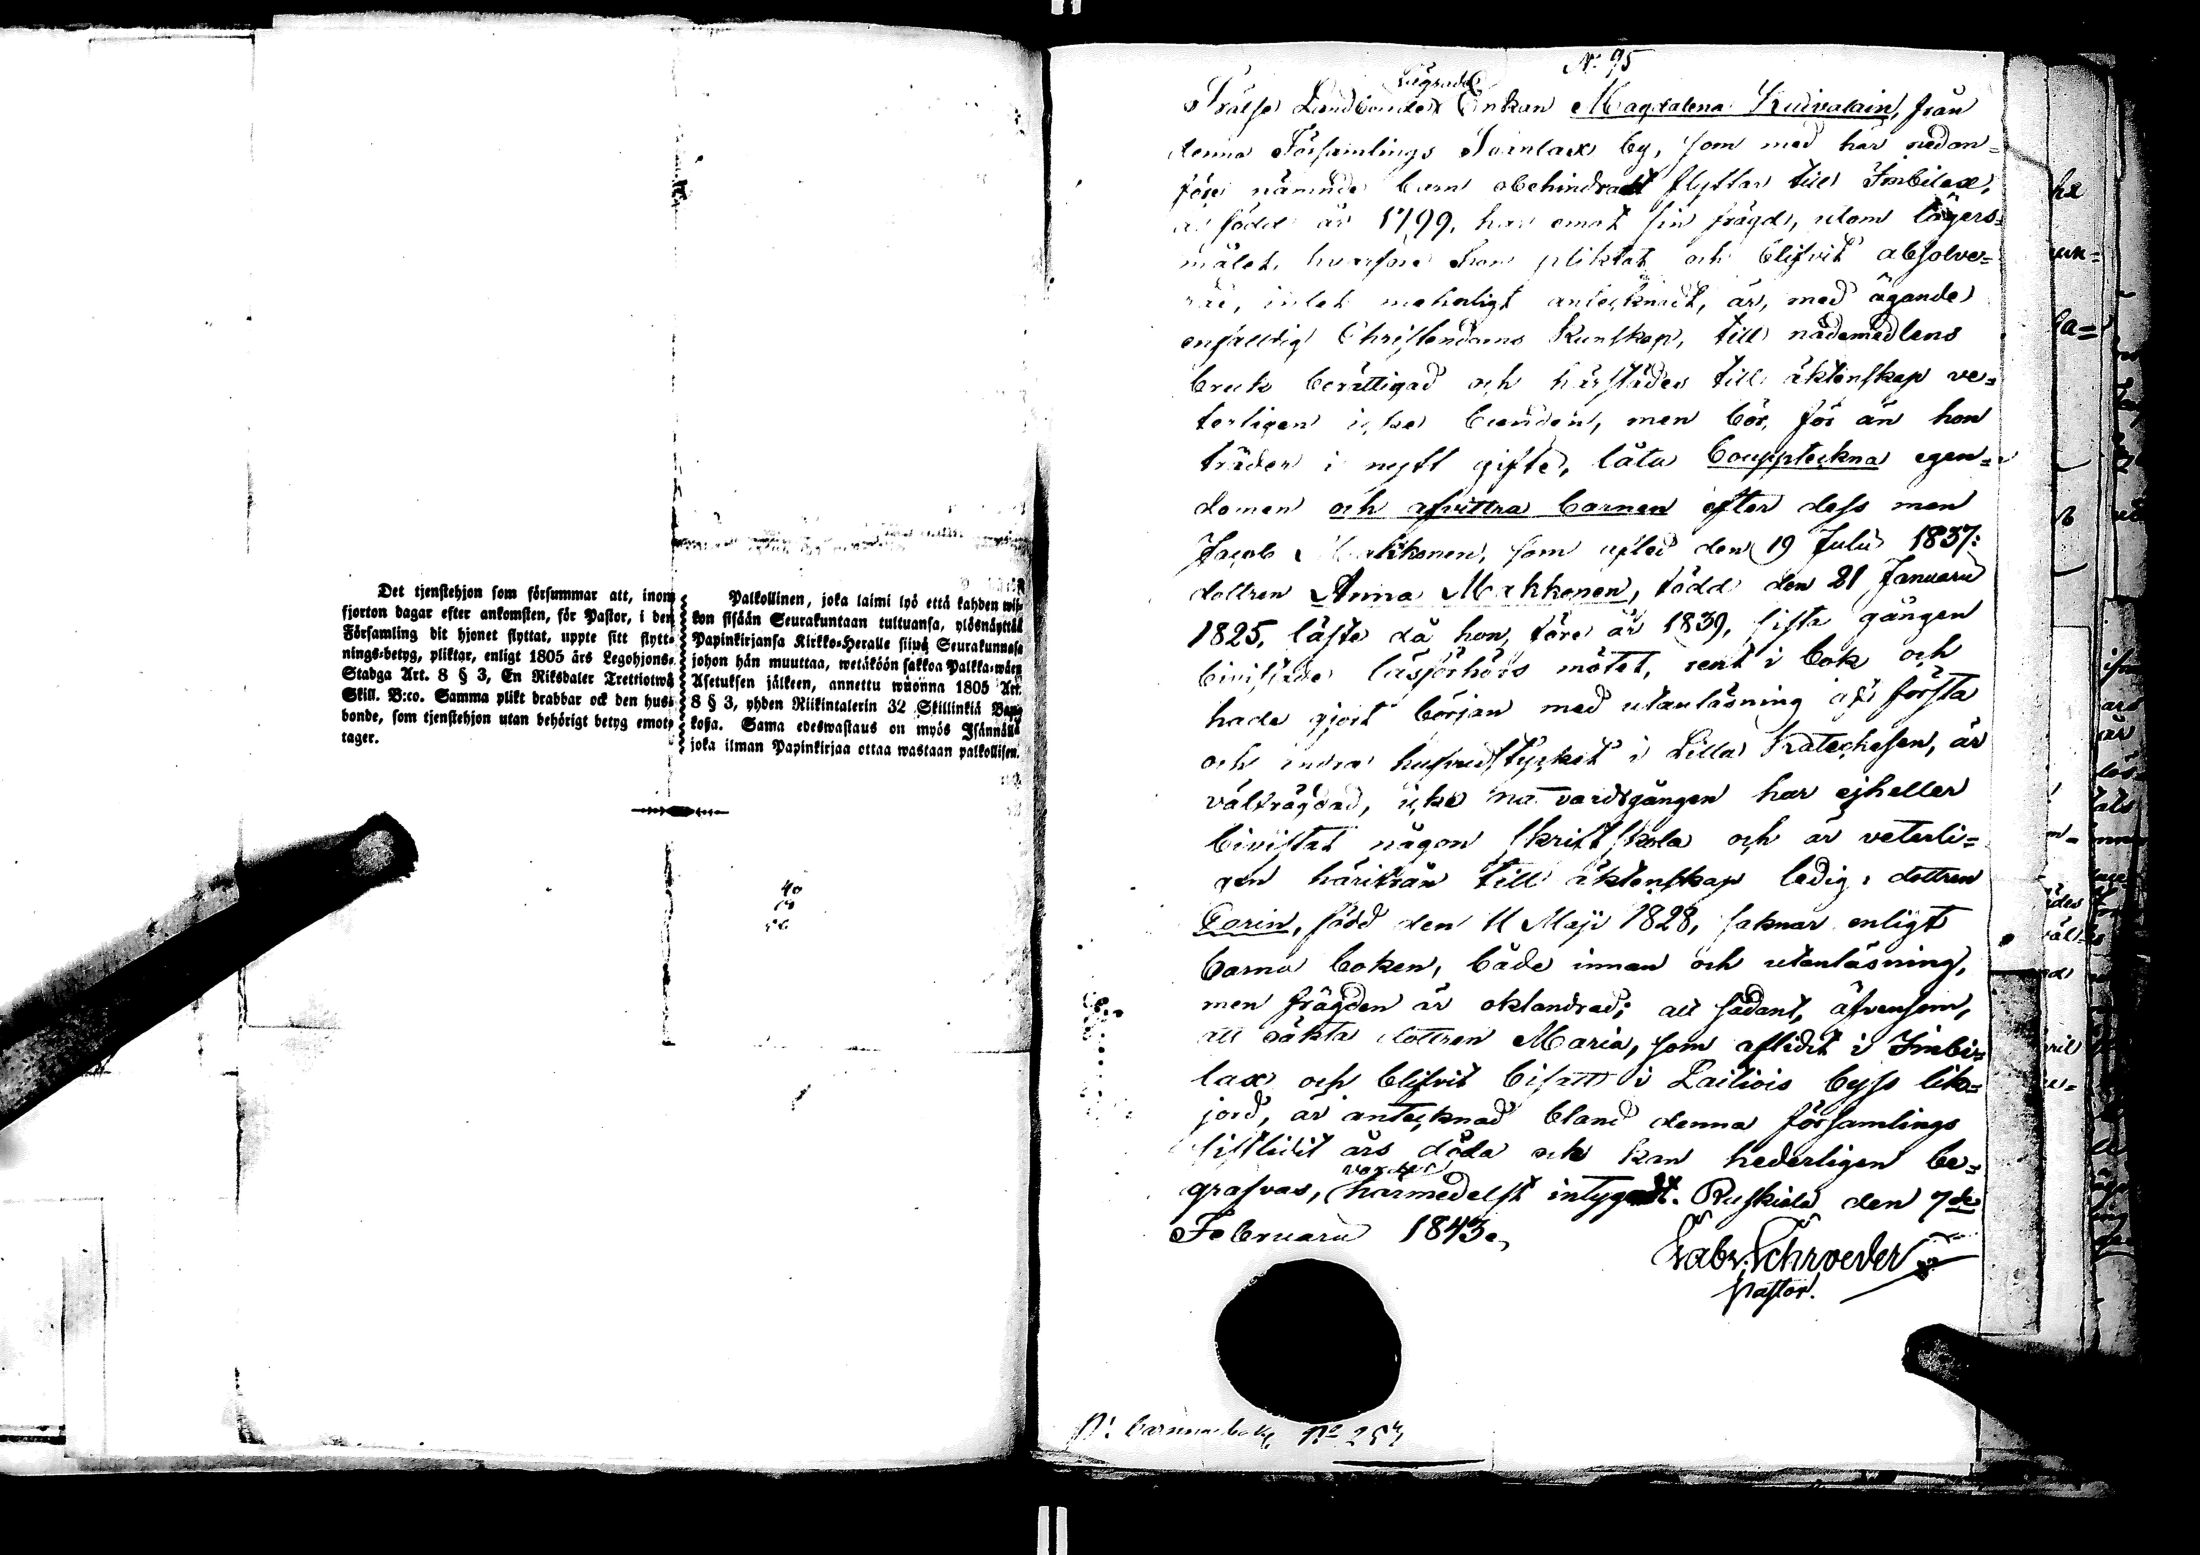 Det tjenstehjon som försummar att, inom
fjorton dagar efter ankomsten, för Pastor, i den
Församling dit hjonet flyttat, uppte sitt flytt-
nings-betyg, pliktar, enligt 1805 års Legohjons-
Stadga Art. 8 § 3, En Riksdaler Trettiotwå
Skill. B:co. Samma plikt drabbar ock den hus-
bonde, som tjenstehjon utan behörigt betyg emot-
tager.
Palkollinen, joka laimi lyö että kahden wii-
kon sisään Seurakuntaan tultuansa, ylösnäyttää
Papinkirjansa Kirkko-Heralle siinä Seurakunnasa
johon hän muuttaa, wetäköön sakkoa Palkka-wäen
Asetuksen jälkeen, annettu wuonna 1805 Art.
8 § 3, yhden Riikintalerin 32 Skillinkiä Banko
koßa. Sama edeswastaus on myös Isännällä
joka ilman Papinkirjaa ottaa wastaan palkollisen.
40
N: 95
Frälse Landbonde Enkan Magdalena Kuivalain, från
denna Församlings Soinlax by, som med här nedan-
före nämnde barn obehindradt flyttar till Imbilax,
är född år 1799, har emot sin frägd, utom lägers-
målet, hvarföre hon pliktat och blifvit absolve-
rad, intet menligt antecknadt, är, med ägande
enfaldig Christendoms Kunskap, till nådemedlens
bruk berättigad och härstädes till äktenskap ve-
terligen icke bunden, men bör, för än hon
träder i nytt gifte, låta bouppteckna egen-
domen och afvittra barnen efter dess man
Jacob Makkonen, som afled den 19 Julii 1837:
dottren Anna Makkonen, född den 21 Januarii
1825, läste då hon, före år 1839, sista gången
bivistade läsförhörs mötet, rent i bok och
hade gjort början med utanläsning af första
och andra hufvudstycket i Lilla Katechesen, är
välfrägdad, icke nattvardsgången har ejheller
bivistat någon skriftskola och är veterli-
gen härifrån till äktenskap ledig: dottren
Carin, född den 11 Maji 1828, saknar enligt
barna boken, både innan och utanläsning,
men frägden är oklandrad; allt sådant, äfvensom,
att oäkta dottren Maria, som aflidit i Imbi-
lax och blifvit bisatt i Laitiois byss lik-
jord, är antecknad bland denna församlings
sistlidit års döda och kan hederligen be-
grafvas, varder härmedelst intygadt. Ruskiala den 7de
Februarii 1843.
Gabr. Schroeder
Pastor.
barnabok No 257